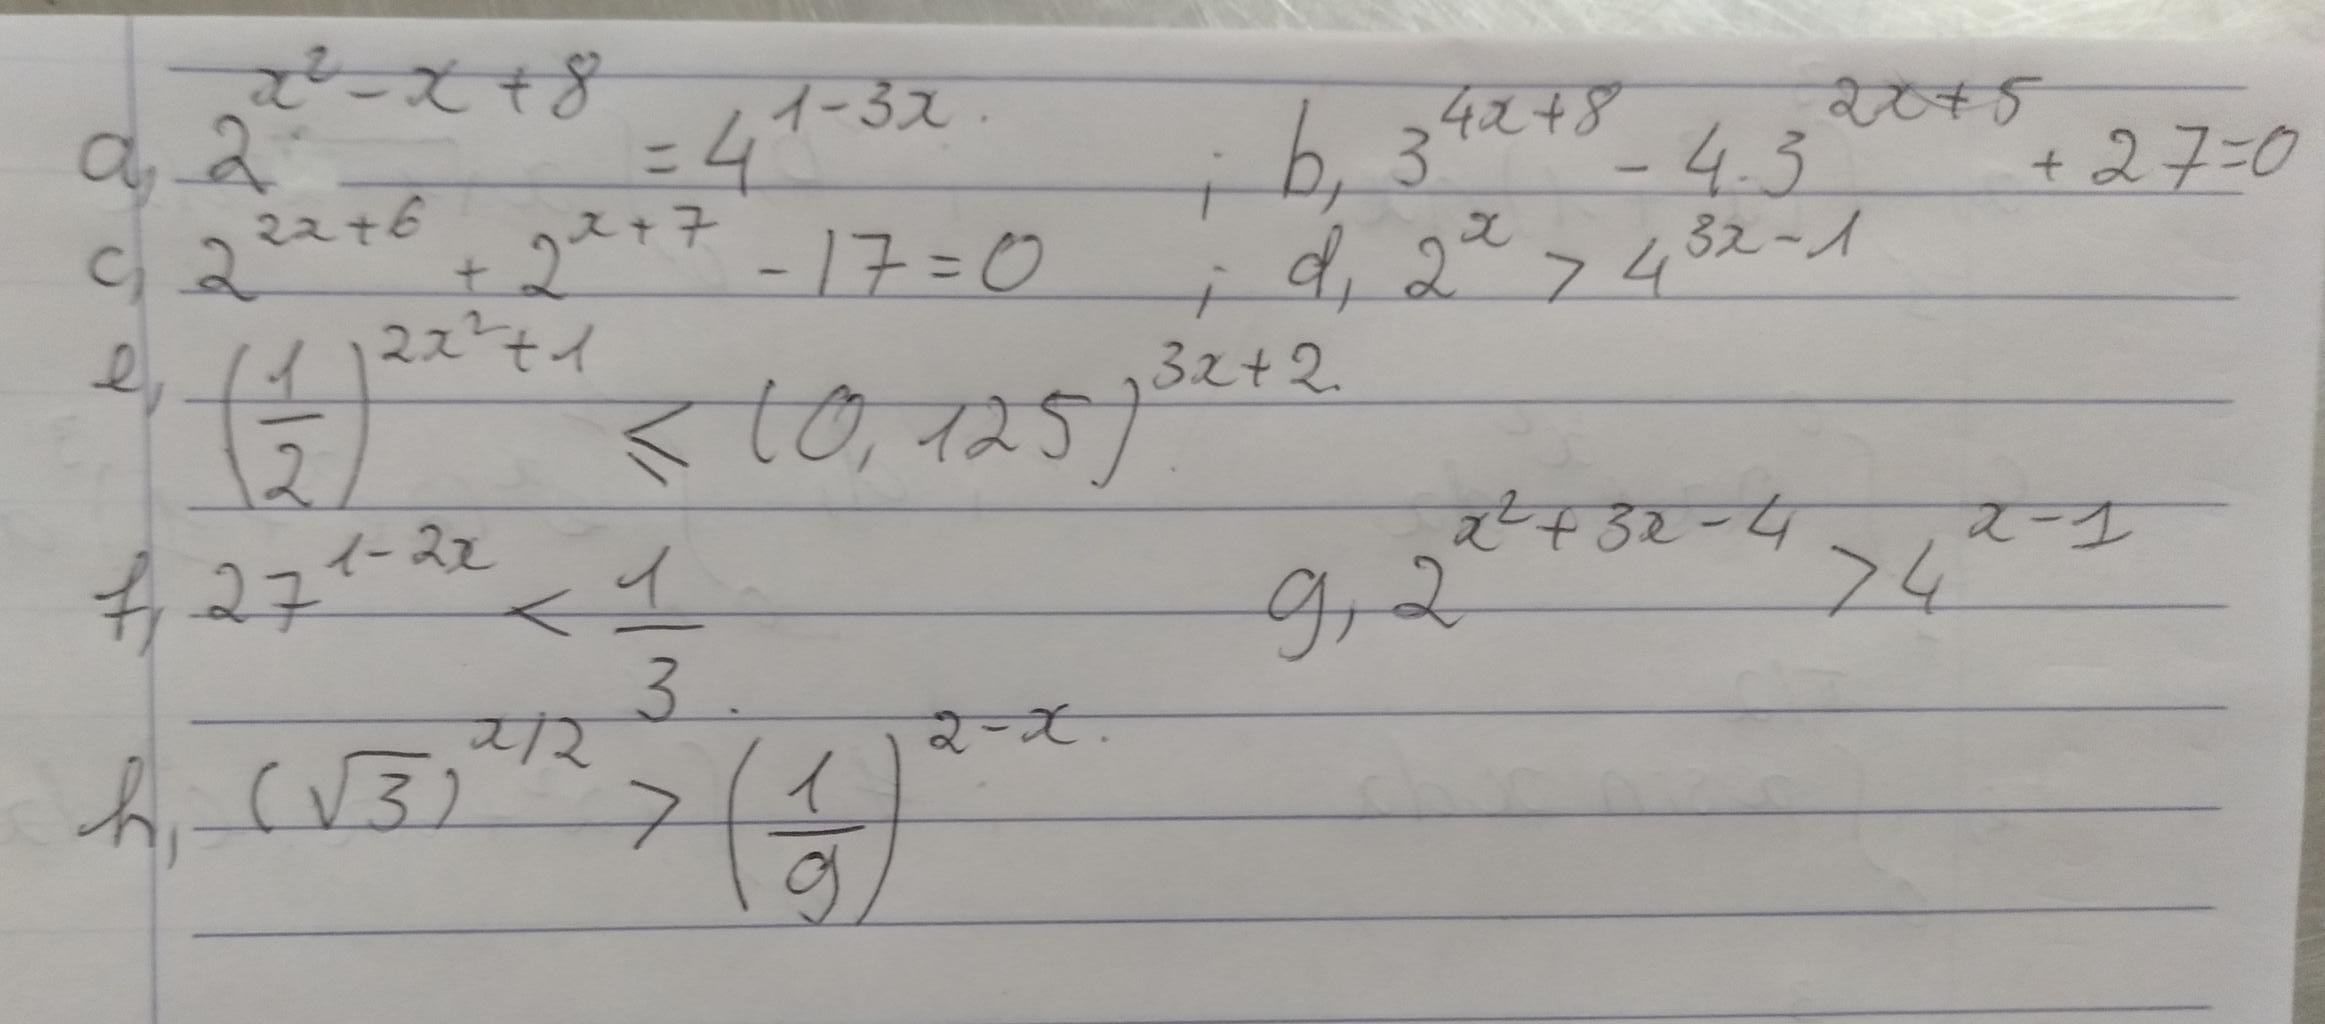 a, 2^{x²-x+8} = 4^{1-3x}. ; b, 3^{4x+8} - 4.3^{2x+5} + 27=0
c, 2^{2x+6} + 2^{x+7} - 17=0 ; d, 2^x > 4^{3x-1}
e, (1/2)^{2x²+1} ≤ (0,125)^{3x+2}.
f, 27^{1-2x} < 1/3. g, 2^{x²+3x-4} > 4^{x-1}
h, (√3)^{x/2} > (1/9)^{2-x}.